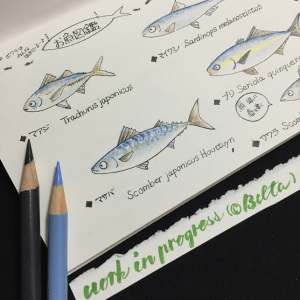 お魚図鑑
マイワシ Sardinops melanostictus
マアジ Trachurus japonicus
ブリ Seriola quinquera
マサバ Scomber japonicus Houttuyn
サワラ Scomb
work in progress (©Belta)